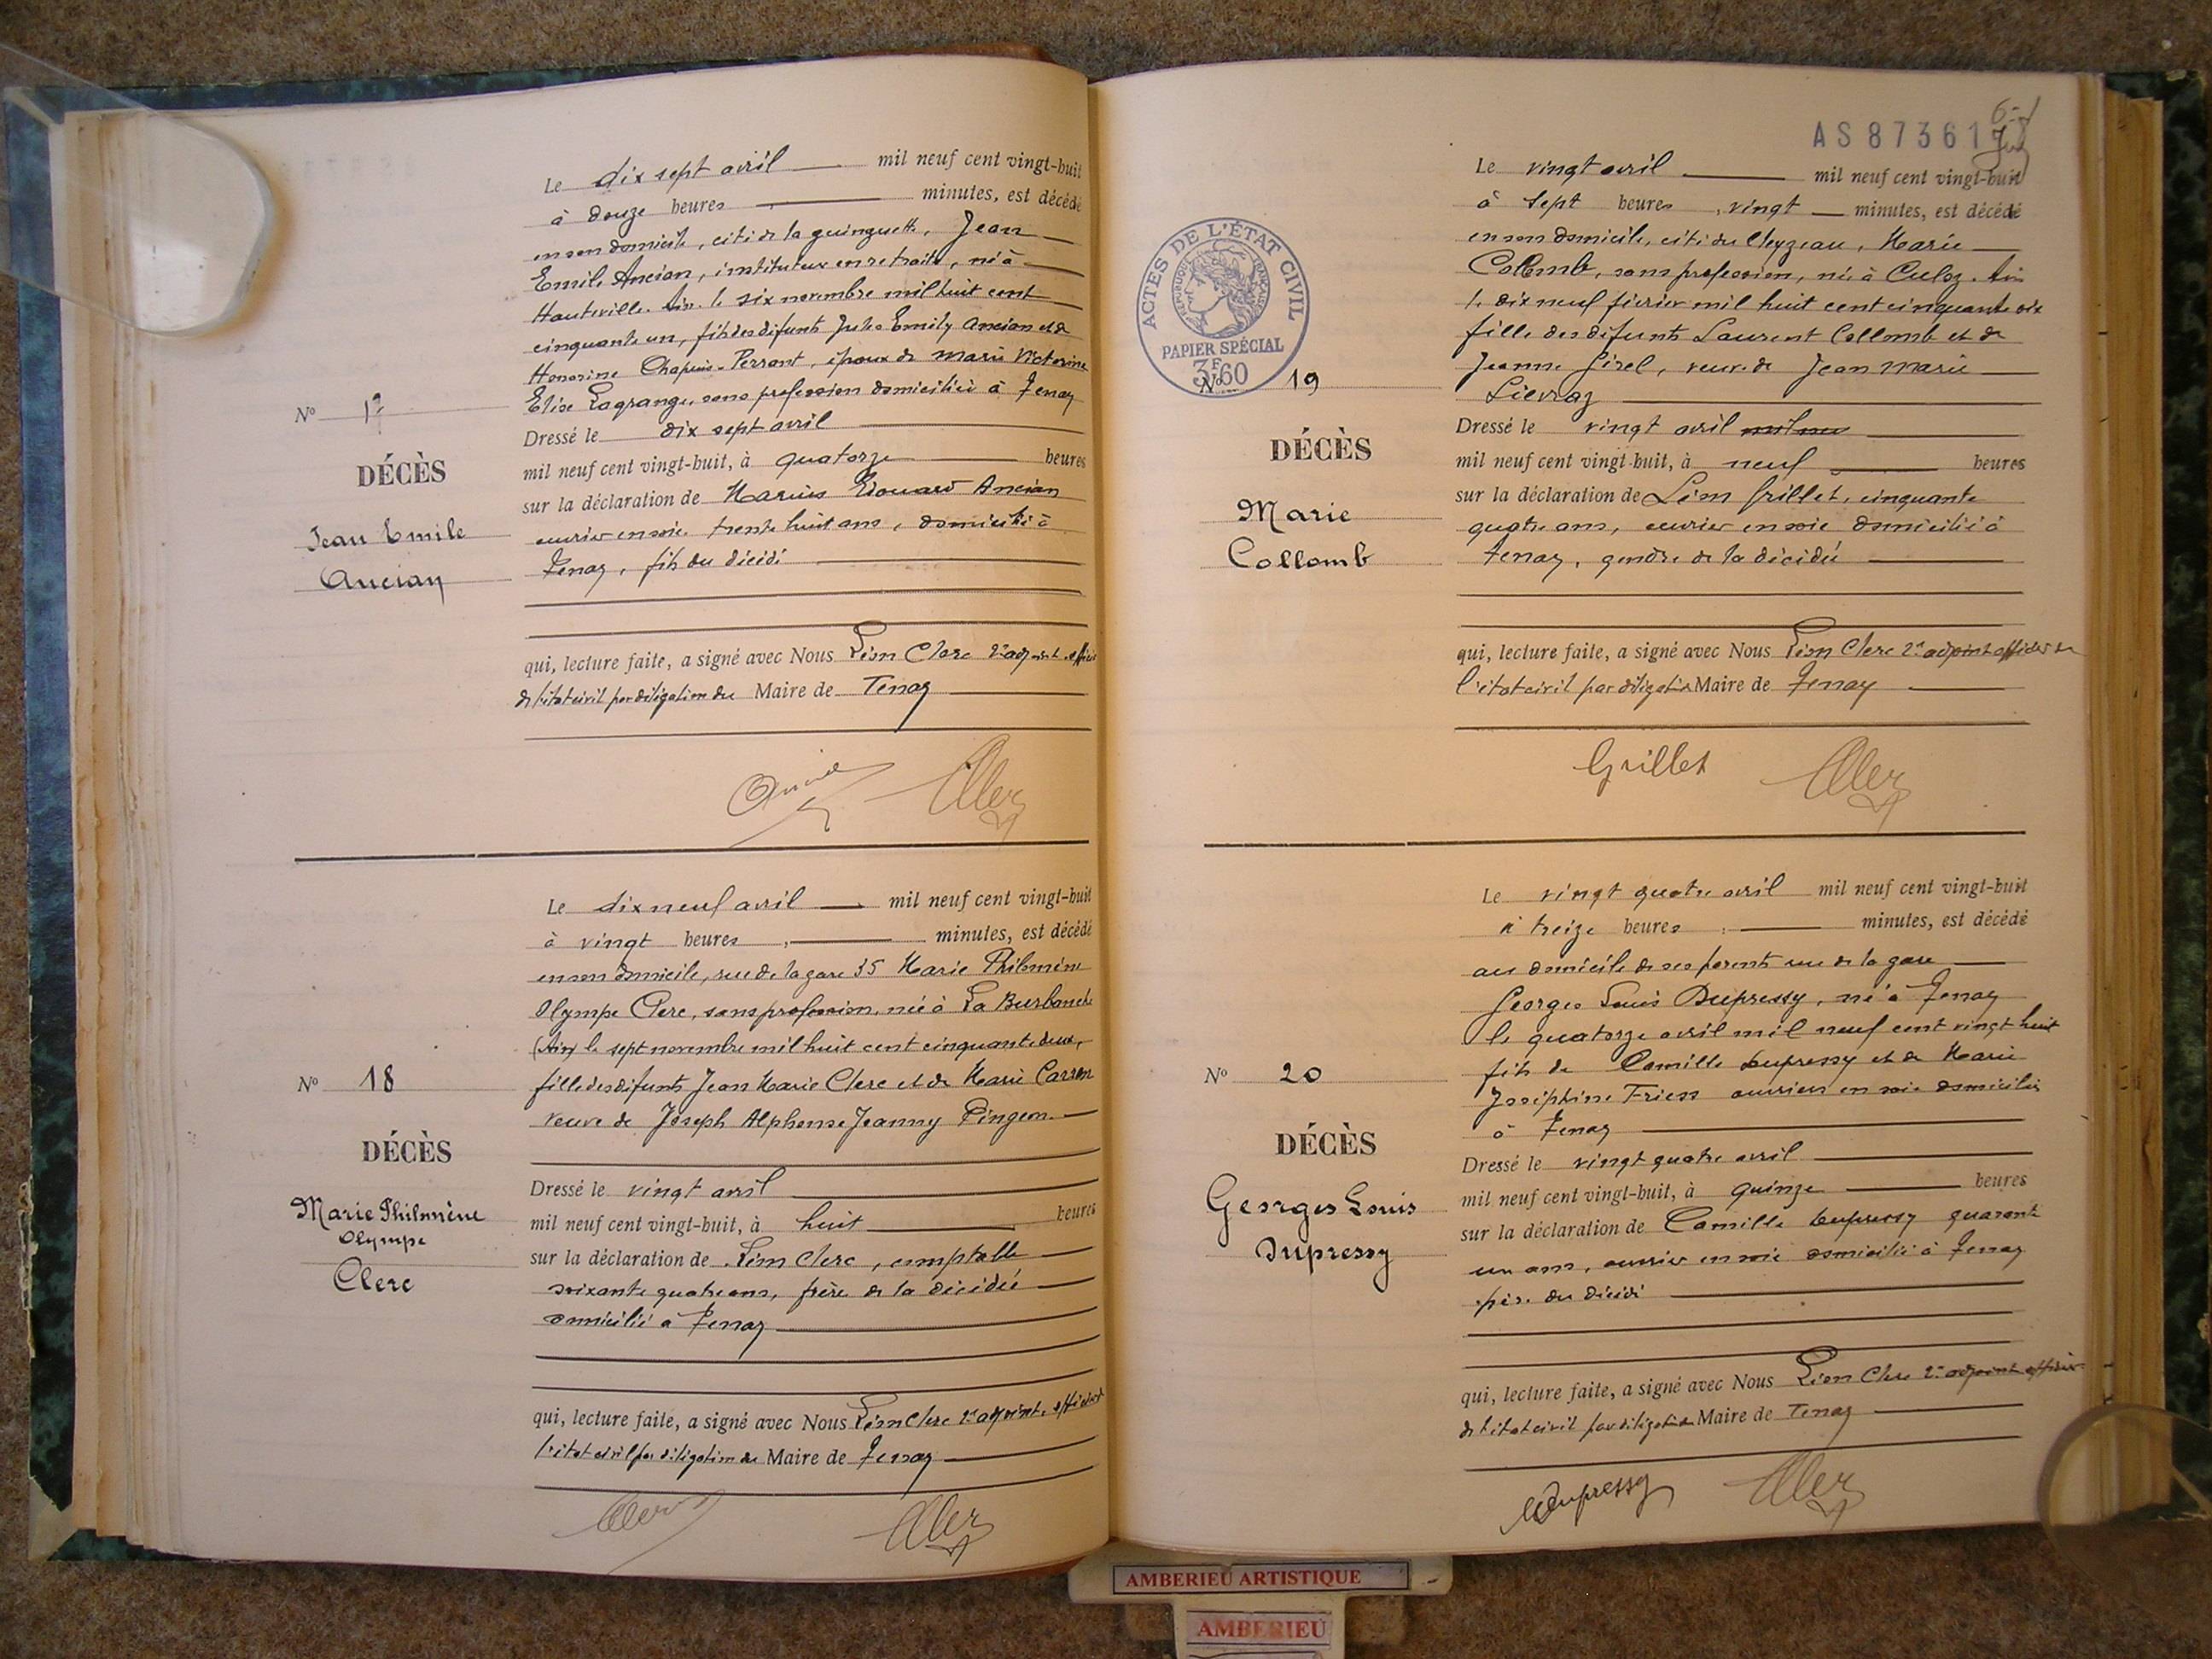 Le dix sept avril mil neuf cent vingt-huit
à douze heures minutes, est décédé
en son domicile, cité de la guinguette, Jean
Emile Ancian, instituteur en retraite, né à
Hauteville. Ain. le six novembre mil huit cent
cinquante un, fils des défunts Jules Emily Ancian et de
Honorine Chapuis-Perrant, époux de Marie Victorine
Elise Lagrange, sans profession domiciliée à Tenay
Dressé le dix sept avril
mil neuf cent vingt-huit, à quatorze heures
sur la déclaration de Marius Edouard Ancian
ouvrier en soie trente huit ans, domicilié à
Tenay, fils du décédé
qui, lecture faite, a signé avec Nous Léon Clerc 2e adjoint officier
de l'état civil par délégation du Maire de Tenay
No 17
DÉCÈS
Jean Emile
Ancian
Le dix neuf avril mil neuf cent vingt-huit
à vingt heures, minutes, est décédé
en son domicile, rue de la gare 35 Marie Philomène
Olympe Clerc, sans profession, née à La Burbanche
(Ain) le sept novembre mil huit cent cinquante deux,
fille des défunts Jean Marie Clerc et de Marie Carron
veuve de Joseph Alphonse Jeanny Pingeon.
Dressé le vingt avril
mil neuf cent vingt-huit, à huit heures
sur la déclaration de Léon Clerc, comptable
soixante quatre ans, frère de la décédée
domicilié à Tenay
qui, lecture faite, a signé avec Nous Léon Clerc 2e adjoint, officier de
l'état civil par délégation du Maire de Tenay
Clerc
No 18
DÉCÈS
Marie Philomène
Olympe
Clerc
AS87361
Le vingt avril mil neuf cent vingt-huit
à sept heures, vingt minutes, est décédé
en son domicile, cité du Cleyzeau, Marie
Collomb, sans profession, née à Culoz. Ain
le dix neuf février mil huit cent cinquante six
fille des défunts Laurent Collomb et de
Jeanne Girel, veuve de Jean Marie
Lievraz
Dressé le vingt avril
mil neuf cent vingt-huit, à neuf heures
sur la déclaration de Léon Grillet, cinquante
quatre ans, ouvrier en soie domicilié à
Tenay, gendre de la décédée
qui, lecture faite, a signé avec Nous Léon Clerc 2e adjoint officier de
l'état civil par délégation Maire de Tenay
Grillet
ACTES DE L'ÉTAT CIVIL
RÉPUBLIQUE FRANÇAISE
PAPIER SPÉCIAL
3F60
No 19
DÉCÈS
Marie
Collomb
Le vingt quatre avril mil neuf cent vingt-huit
à treize heures, minutes, est décédé
au domicile de ses parents rue de la gare
Georges Louis Dupressy, né à Tenay
le quatorze avril mil neuf cent vingt huit
fils de Camille Dupressy et de Marie
Joséphine Friess ouvriers en soie domiciliés
à Tenay
Dressé le vingt quatre avril
mil neuf cent vingt-huit, à quinze heures
sur la déclaration de Camille Dupressy quarante
un ans, ouvrier en soie domicilié à Tenay
père du décédé
qui, lecture faite, a signé avec Nous Léon Clerc 2e adjoint officier
de l'état civil par délégation Maire de Tenay
Dupressy
No 20
DÉCÈS
Georges Louis
Dupressy
AMBERIEU ARTISTIQUE
AMBERIEU